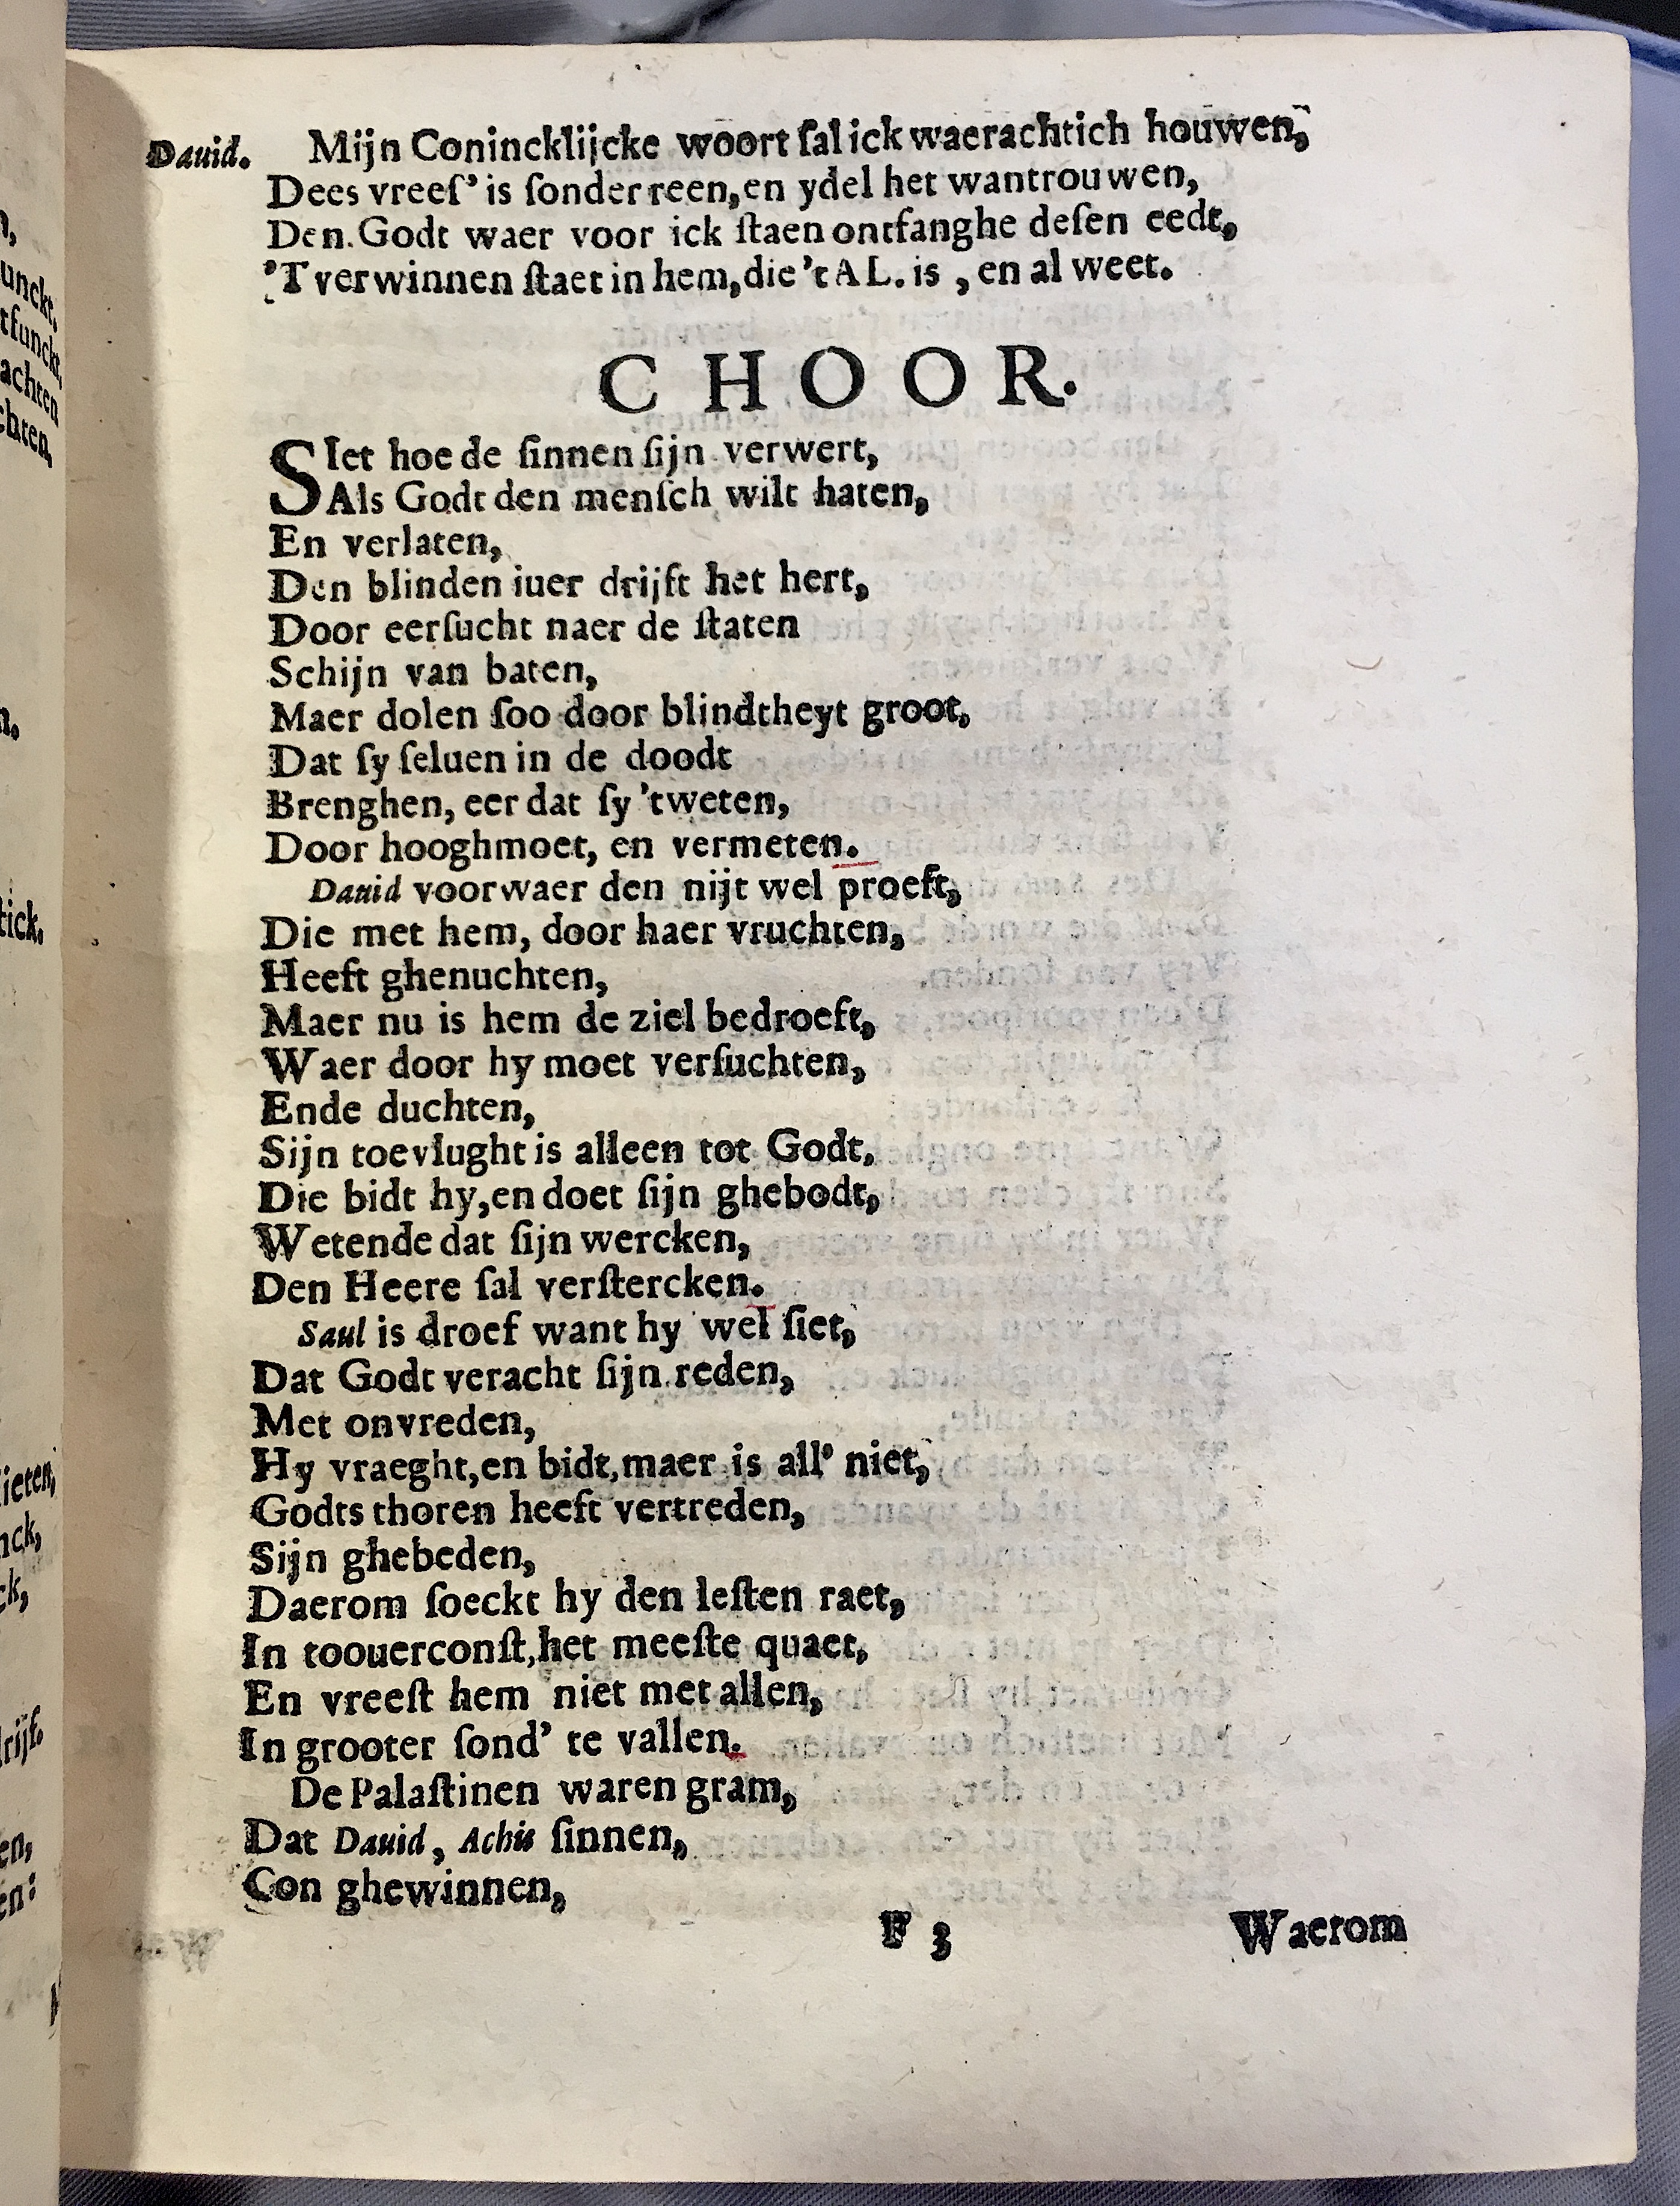 Dauid. Mijn Conincklijcke woort ſal ick waerachtich houwen,
Dees vreeſ’ is ſonder reen, en ydel het wantrouwen,
Den. Godt waer voor ick ſtaen ontfanghe deſen eedt,
’T verwinnen ſtaet in hem, die ’t AL. is, en al weet.
CHOOR.
SIet hoe de ſinnen ſijn verwert,
Als Godt den menſch wilt haten,
En verlaten,
Den blinden iuer drijft het hert,
Door eerſucht naer de ſtaten
Schijn van baten,
Maer dolen ſoo door blindtheyt groot,
Dat ſy ſeluen in de doodt
Brenghen, eer dat ſy ’tweten,
Door hooghmoet, en vermeten.
Dauid voorwaer den nijt wel proeft,
Die met hem, door haer vruchten,
Heeft ghenuchten,
Maer nu is hem de ziel bedroeft,
Waer door hy moet verſuchten,
Ende duchten,
Sijn toevlught is alleen tot Godt,
Die bidt hy, en doet ſijn ghebodt,
Wetende dat ſijn wercken,
Den Heere ſal verſtercken.
Saul is droef want hy wel ſiet,
Dat Godt veracht ſijn reden,
Met onvreden,
Hy vraeght, en bidt, maer is all’ niet,
Godts thoren heeft vertreden,
Sijn ghebeden,
Daerom ſoeckt hy den leſten raet,
In toouerconſt, het meeſte quaet,
En vreeſt hem niet met allen,
In grooter ſond’ te vallen.
De Palaſtinen waren gram,
Dat Dauid, Achis ſinnen,
Con ghewinnen,
F 3 Waerom